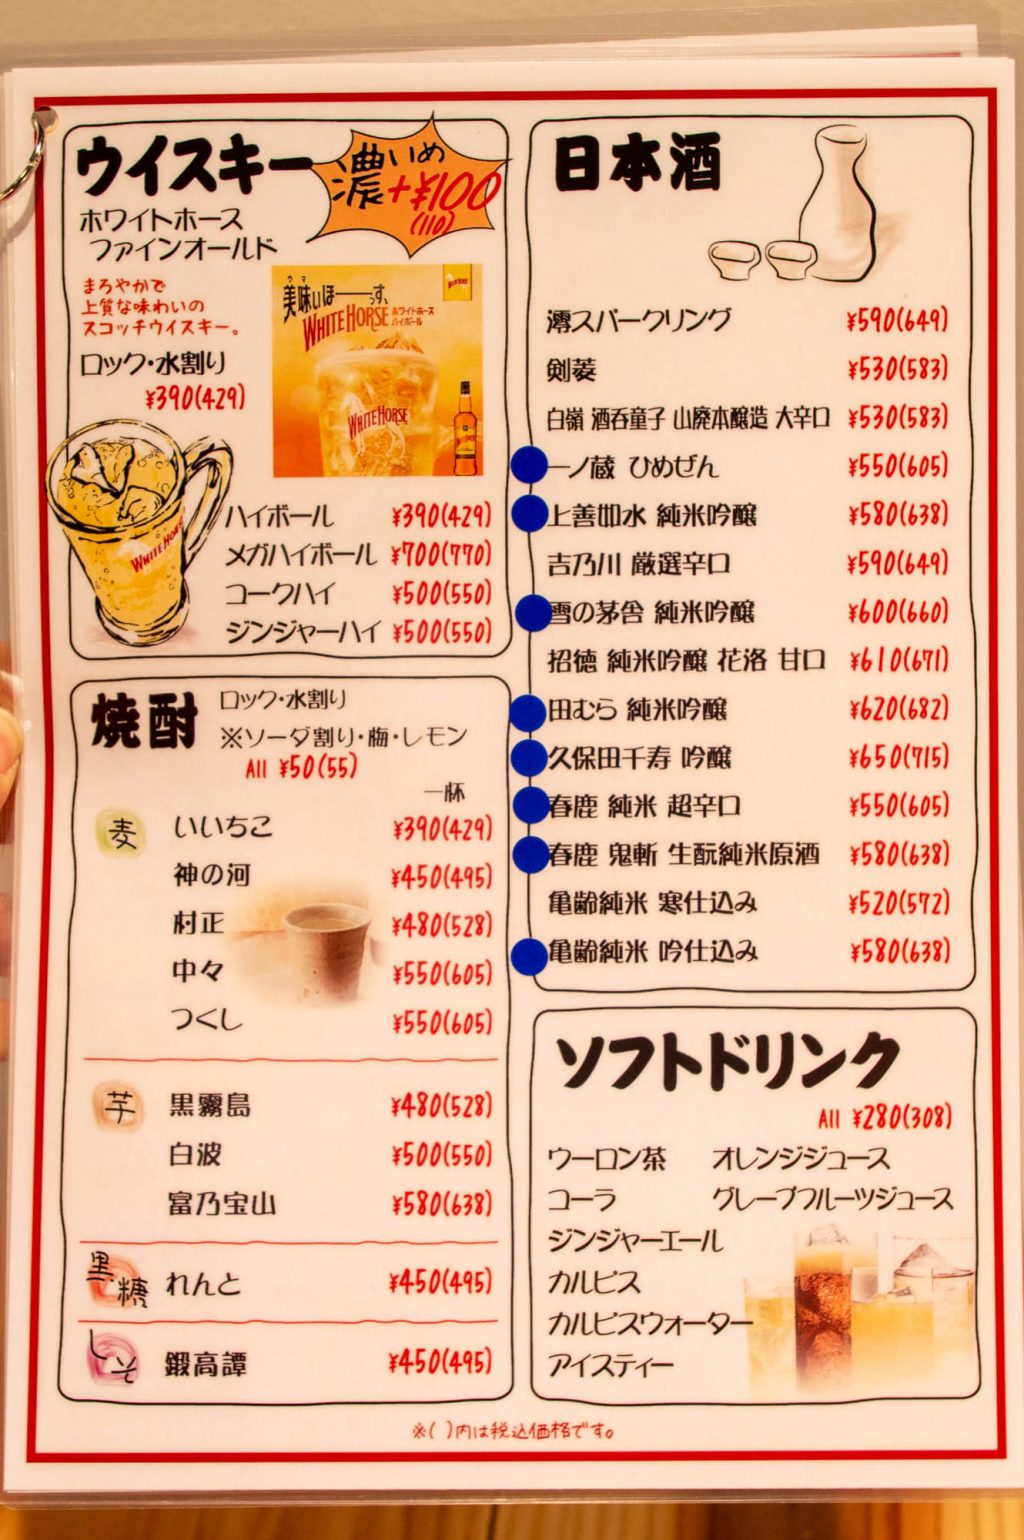 ウイスキー
濃いめ
+¥100
(110)
ホワイトホース
ファインオールド
まろやかで
上質な味わいの
スコッチウイスキー。
ロック・水割り
¥390(429)
ウマ
美味いほーーっす、
WHITE HORSE ホワイトホース
ハイボール
WHITE HORSE
WHITE HORSE
ハイボール ¥390(429)
メガハイボール ¥700(770)
コークハイ ¥500(550)
ジンジャーハイ ¥500(550)
焼酎 ロック・水割り
※ソーダ割り・梅・レモン
All ¥50(55)
一杯
麦 いいちこ ¥390(429)
神の河 ¥450(495)
村正 ¥480(528)
中々 ¥550(605)
つくし ¥550(605)
芋 黒霧島 ¥480(528)
白波 ¥500(550)
富乃宝山 ¥580(638)
黒糖 れんと ¥450(495)
しそ 鍛高譚 ¥450(495)
日本酒
澪スパークリング ¥590(649)
剣菱 ¥530(583)
白嶺 酒呑童子 山廃本醸造 大辛口 ¥530(583)
一ノ蔵 ひめぜん ¥550(605)
上善如水 純米吟醸 ¥580(638)
吉乃川 厳選辛口 ¥590(649)
雪の茅舎 純米吟醸 ¥600(660)
招徳 純米吟醸 花洛 甘口 ¥610(671)
田むら 純米吟醸 ¥620(682)
久保田千寿 吟醸 ¥650(715)
春鹿 純米 超辛口 ¥550(605)
春鹿 鬼斬 生酛純米原酒 ¥580(638)
亀齢純米 寒仕込み ¥520(572)
亀齢純米 吟仕込み ¥580(638)
ソフトドリンク
All ¥280(308)
ウーロン茶 オレンジジュース
コーラ グレープフルーツジュース
ジンジャーエール
カルピス
カルピスウォーター
アイスティー
※( )内は税込価格です。